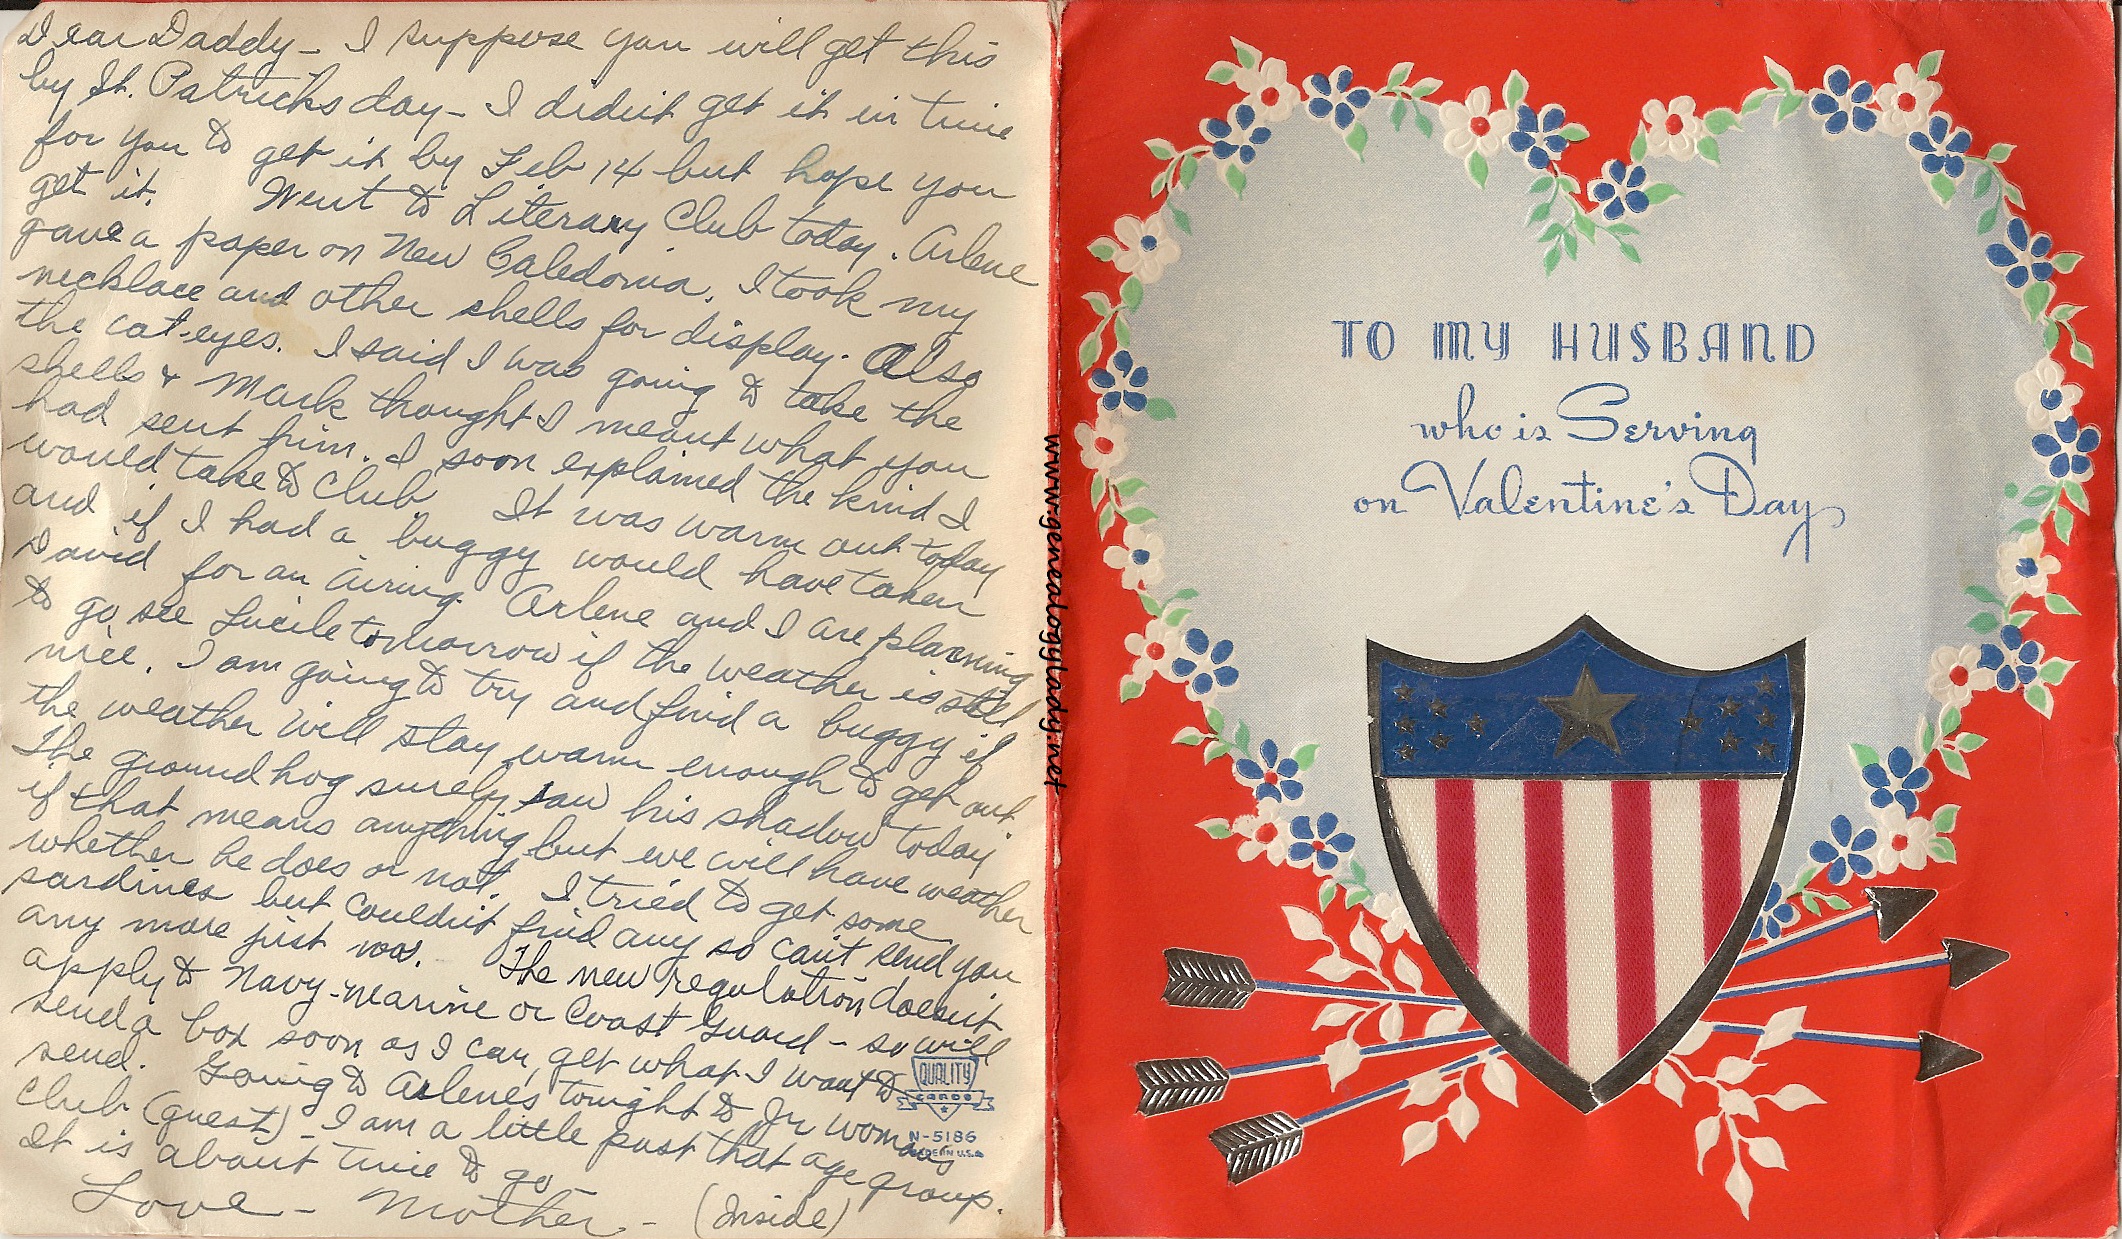 Dear Daddy - I suppose you will get this
by St. Patricks day - I didn't get it in time
for you to get it by Feb 14 but hope you
get it. Went to Literary Club today. Arlene
gave a paper on New Caledonia. I took my
necklace and other shells for display. Also
the cat-eyes. I said I was going to take the
shells & Mark thought I meant what you
had sent him. I soon explained the kind I
would take to Club. It was warm out today
and if I had a buggy would have taken
David for an airing. Arlene and I are planning
to go see Lucile tomorrow if the weather is still
nice. I am going to try and find a buggy if
the weather will stay warm enough to get out
The ground hog surely saw his shadow today
if that means anything but we will have weather
whether he does or not. I tried to get some
sardines but couldn't find any so can't send you
any more just now. The new regulation doesn't
apply to Navy-Marine or Coast Guard - so will
send a box soon as I can get what I want to
send. Going to Arlene's tonight to Jr Womans
Club (guest) - I am a little past that age group.
It is about time to go -
Love - Mother - (Inside)
QUALITY
CARDS
N-5186
MADE IN U.S.A.
www.genealogylady.net
TO MY HUSBAND
who is Serving
on Valentine's Day